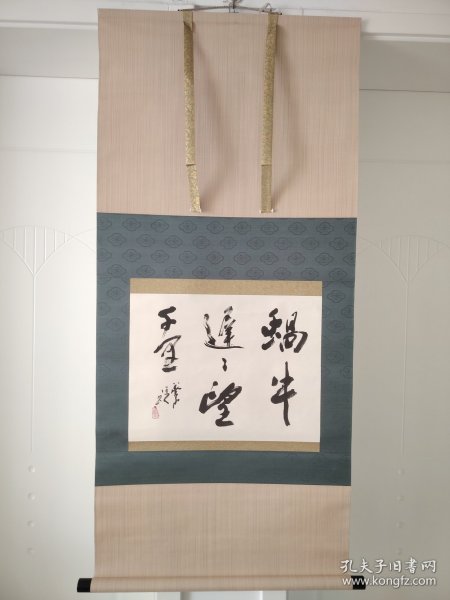 蝸牛
遅々望
千里
孔夫子旧书网
www.kongfz.com